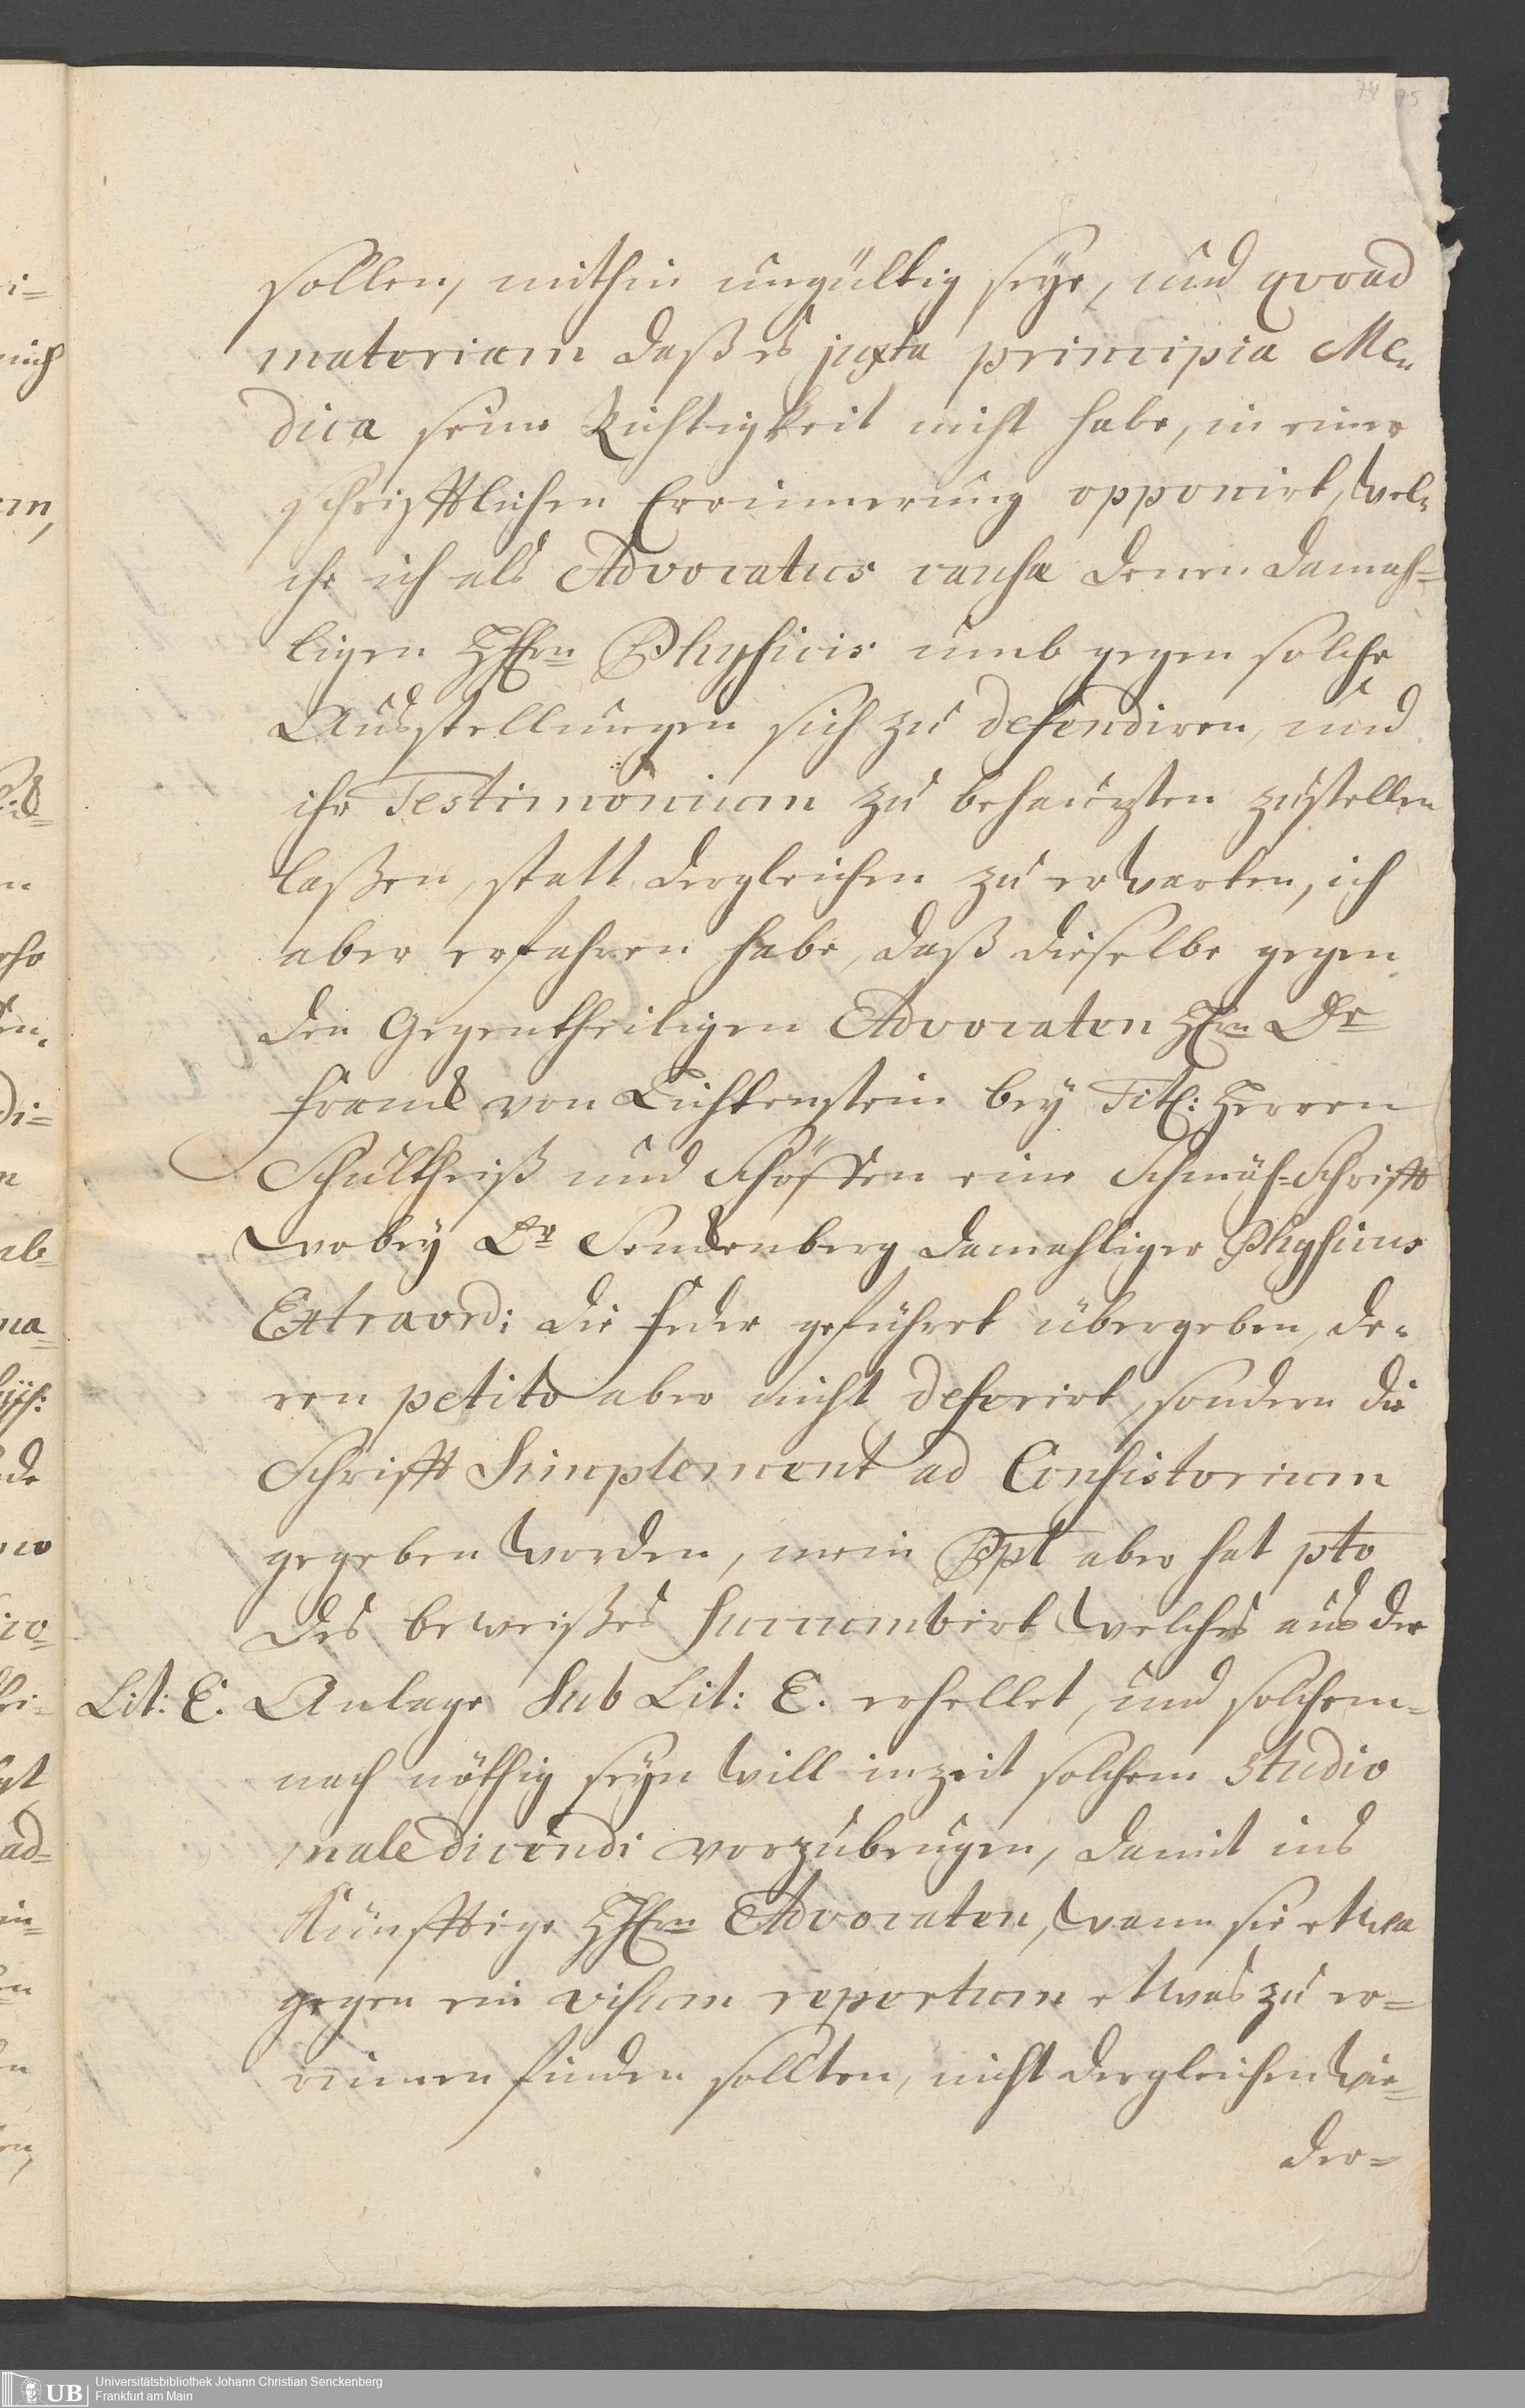 74 75
sollen, mithin ungültig seye, und qvoad
materiam daß es juxta principia Me„
dica seine Richtigkeit nicht habe, in einer
schrifftlichen Erinnerung opponirt, wel„
che ich als Advocatus causæ denen damah=
ligen HHrn Physicis umb gegen solche
Ausstellungen sich zu defendiren, und
ihr Testimonium zu behaupten zustellen
laßen, statt dergleichen zu erwarten, ich
aber erfahren habe, daß dieselbe gegen
den Gegentheiligen Advocaten Hrn Dr
von Lichtenstein bey Titl: Herren
Schultheiß und Schöffen eine Schmäh=Schrifft
wobey Dr Senckenberg damahliger Physicus
Extraord: die feder geführet übergeben, de„
ren petito aber nicht deferirt, sondern die
Schrifft Simplement ad Consistorium
gegeben worden, mein Ppl aber hat pto
des beweißes succumbirt welches aus der
Lit: E. Anlage Sub Lit: E. erhellet, und solchem=
nach nöthig seyn will inzeit solchem studio
maledicendi vorzubeugen, damit ins
Künfftige HHrn Advocaten, wann sie etwa
gegen ein visum repertum etwas zu er=
rinnen finden sollten, nicht dergleichen wie=
der=
UB Universitätsbibliothek Johann Christian Senckenberg
Frankfurt am Main